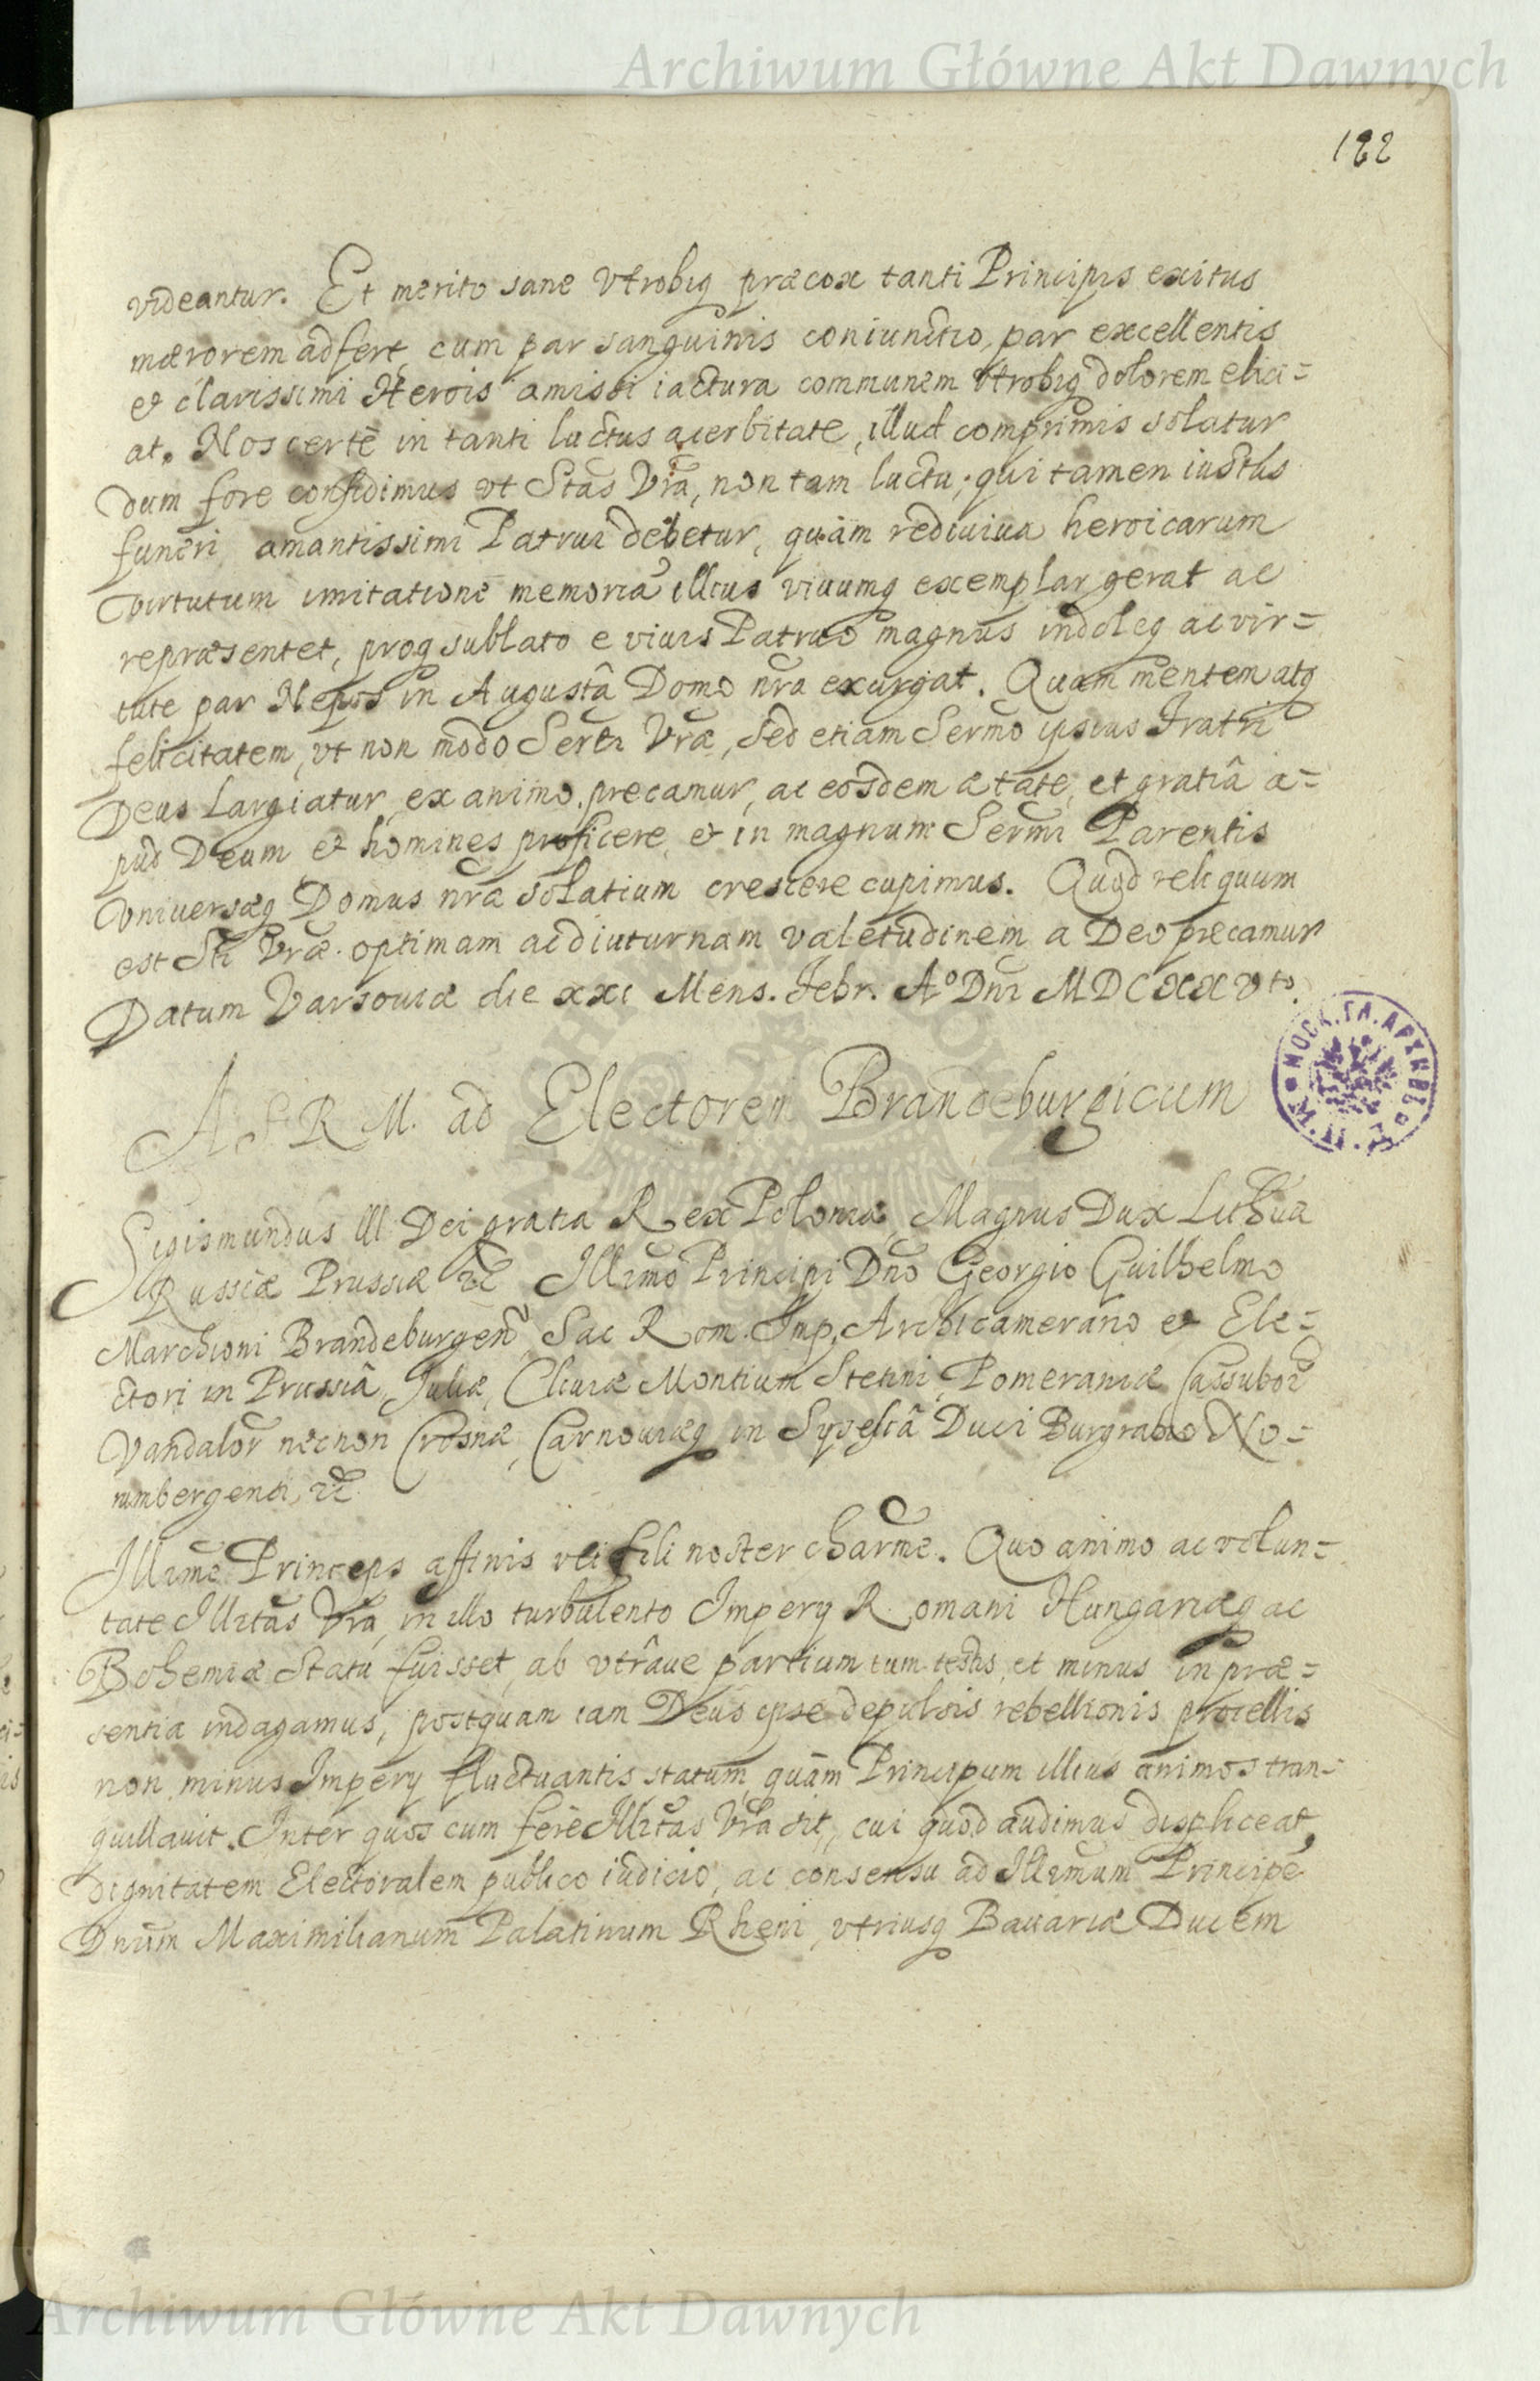 Archiwum Główne Akt Dawnych
122
videantur. Et merito sane vtrobiq præcox tanti Principis exitus
mærorem adfert, cum par sanguinis coniunctio, par excellentis
et clarissimi Herois amissi iactura communem vtrobiq dolorem elici=
at. Nos certè in tanti luctus acerbitate, illud comprimis solatur
dum fore confidimus vt Stas Vra, non tam luctu, qui tamen iustus
funeri amantissimi Patrui debetur, quàm rediuiua heroicarum
virtutum imitatione memoria illius viuumq exemplar gerat ac
repræsentet, proq sublato e viuis Patruo magnus indoleq ac vir=
tute par Nepos in Augustâ Domo nra exurgat. Quam mentem atq
felicitatem, vt non modo Serti Vræ, sed etiam Sermo ipsius Fratri
Deus largiatur, ex animo precamur, ac eosdem ætate, et gratiâ a=
pud Deum et homines proficere, et in magnum Sermi Parentis
Vniuersæq Domus nræ solatium crescere cupimus. Quod reliquum
est Sti Vræ optimam ac diuturnam valetudinem a Deo precamur
Datum Varsouiæ die xxi Mens. Febr. Aº Dni MDCXXVto.
A S R M. ad Electorem Brandeburgicum
Sigismundus III Dei gratia Rex Poloniæ, Magnus Dux Lithuã
Russiæ Prussiæ etc Illrmo Principi Dno Georgio Guilhelmo
Marchioni Brandeburgen Sac Rom. Imp. Archicamerario et Ele=
ctori in Prussiâ, Juliæ, Cliuiæ Montium Stetini, Pomeraniæ Cassubor
Vandalor necnon Crosnæ, Carnouiæq in Sylesiâ Duci Burgrabio No=
rimbergensi, etc
Illrme Princeps affinis vti fili noster charme. Quo animo ac volun=
tate Illrtas Vra, in illo turbulento Impery Romani Hungariæq ac
Bohemiæ Statu fuisset, ab vtrâue partium tum stetis, et minus in præ=
sentia indagamus, postquam iam Deus ipse depulsis rebellionis procellis
non minus Impery fluctuantis statum, quàm Principum illius animos tran=
quillauit. Inter quos cum ferè Illrtas Vra sit, cui quod audimus displiceat,
dignitatem Electoralem publico iudicio, ac consensu ad Illrmum Principe
Dnum Maximilianum Palatinum Rheni, vtriusq Bauariæ Ducem
Archiwum Główne Akt Dawnych